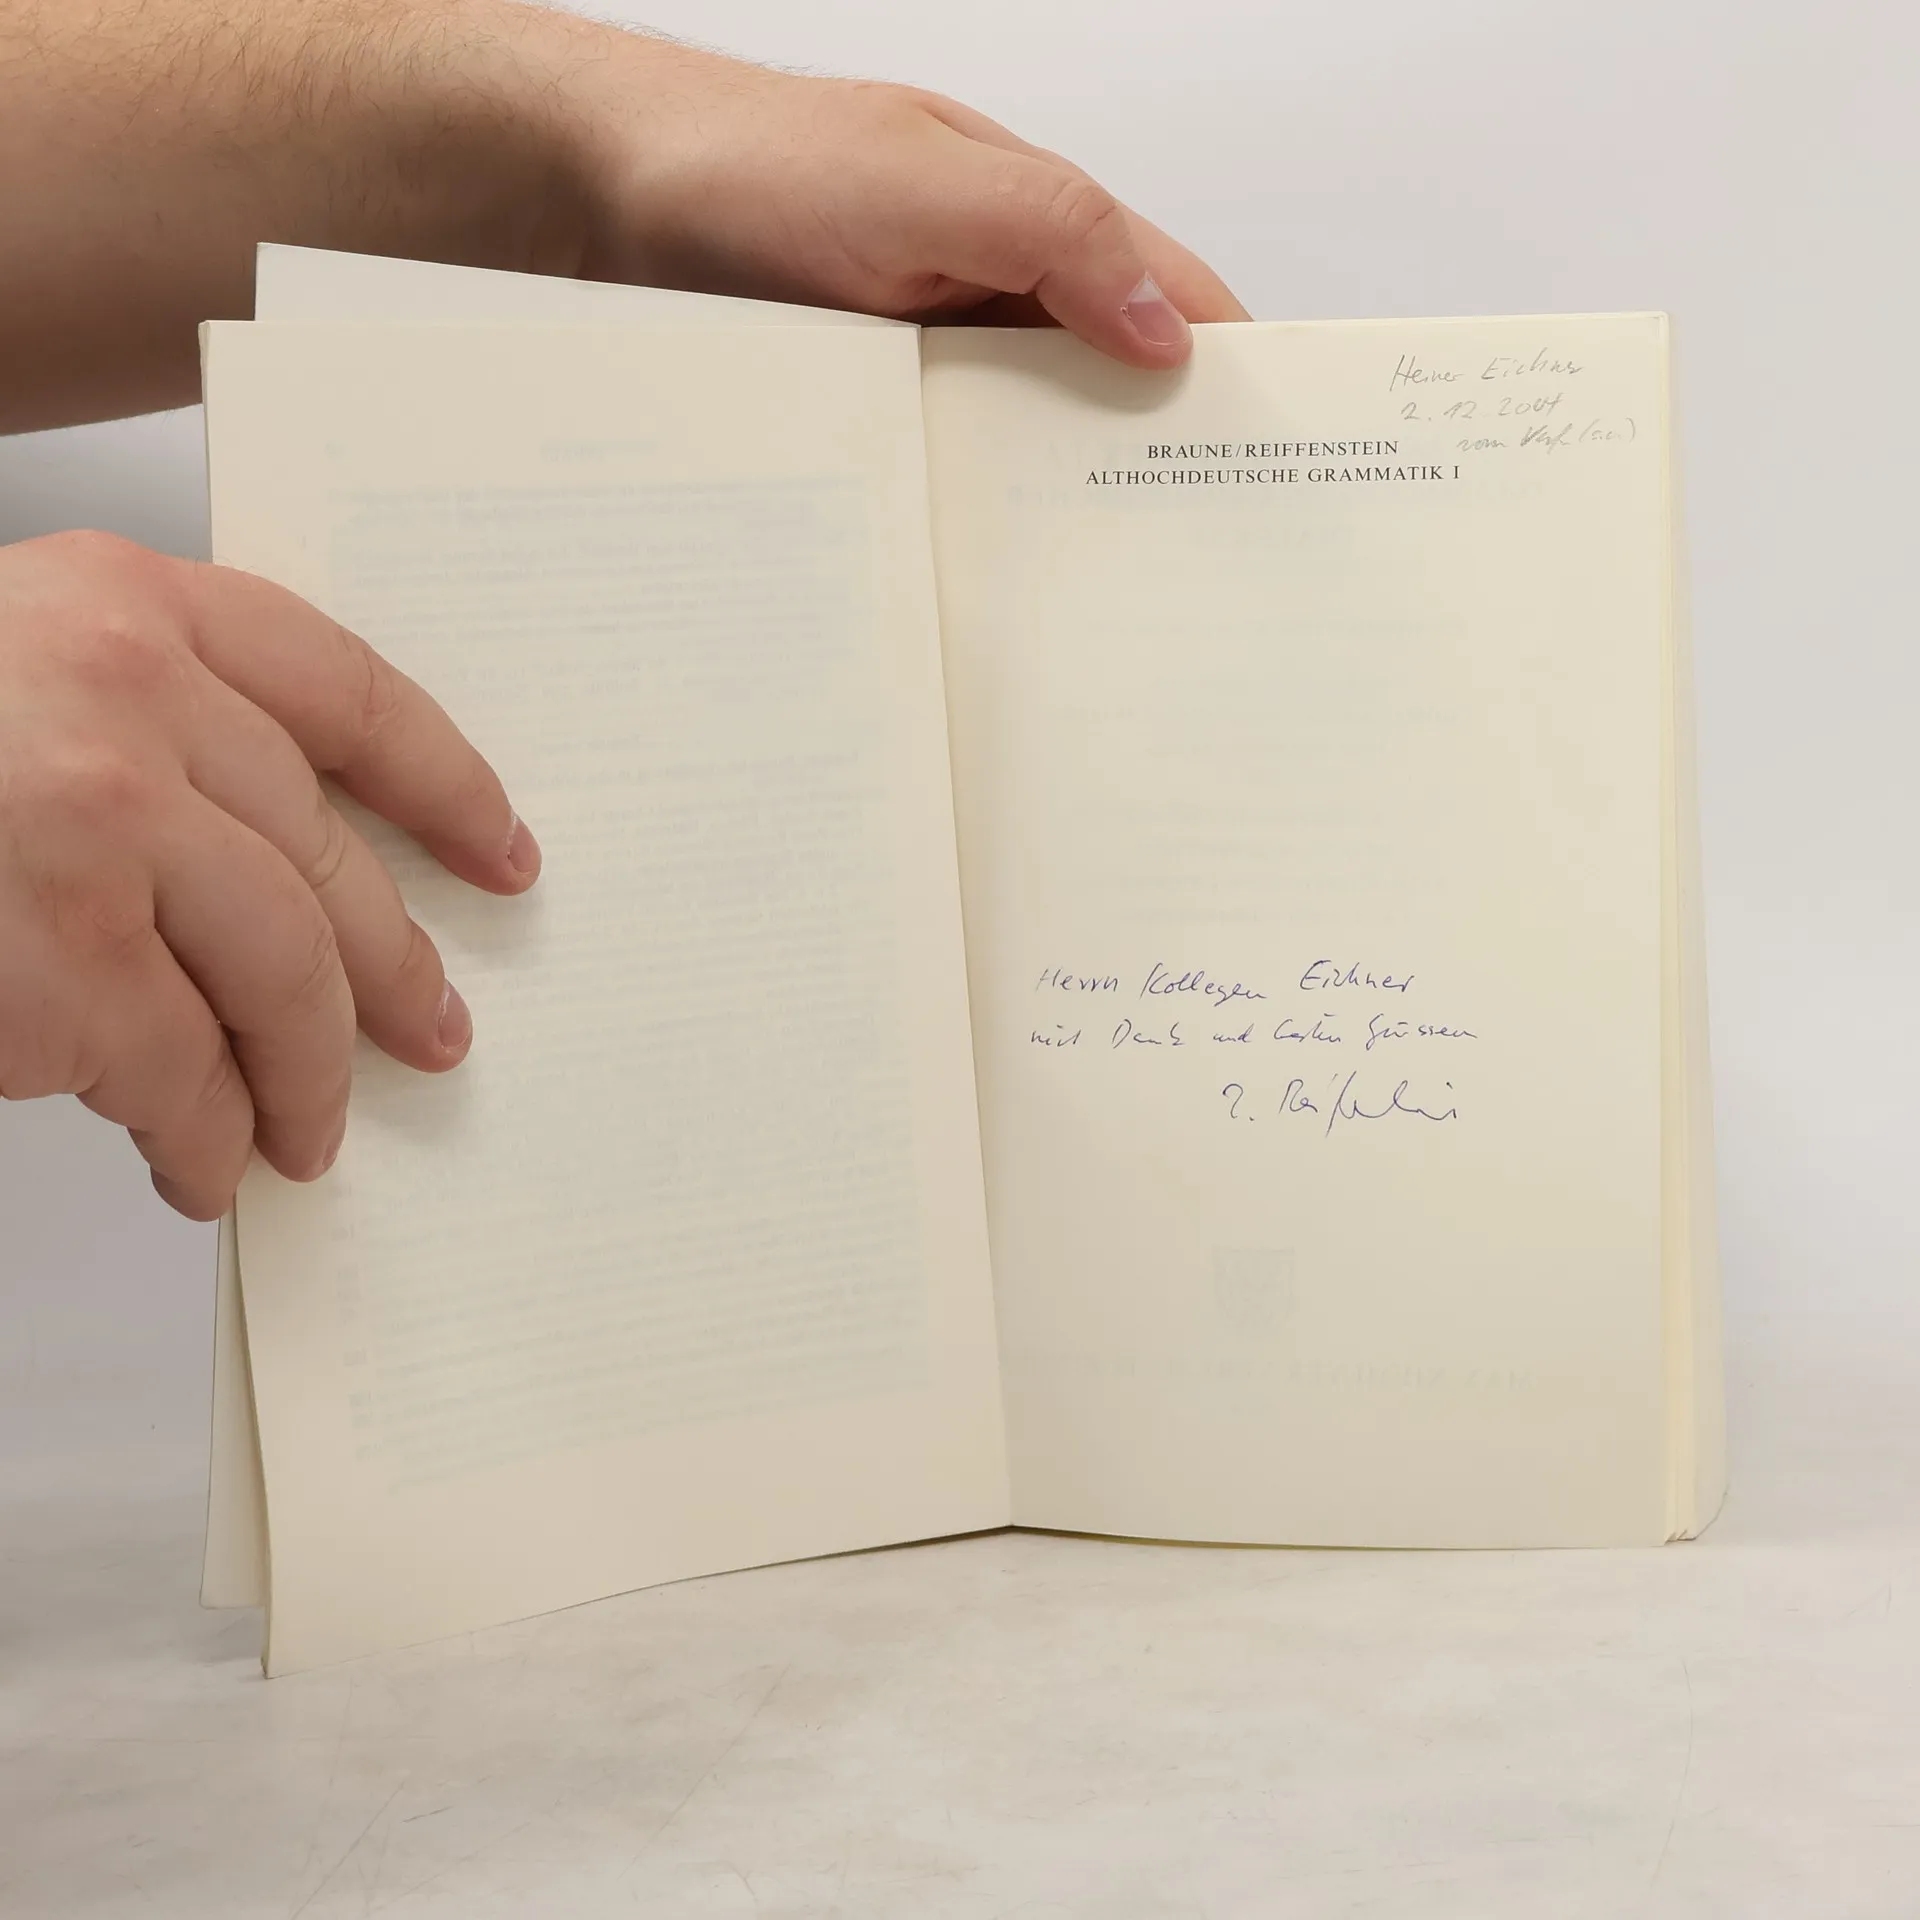 Heiner Eichner
2. 12. 2004
vom Verf.
BRAUNE/REIFFENSTEIN
ALTHOCHDEUTSCHE GRAMMATIK I
Herrn Kollegen Eichner
mit Dank und besten Grüssen
I. Reiffenstein